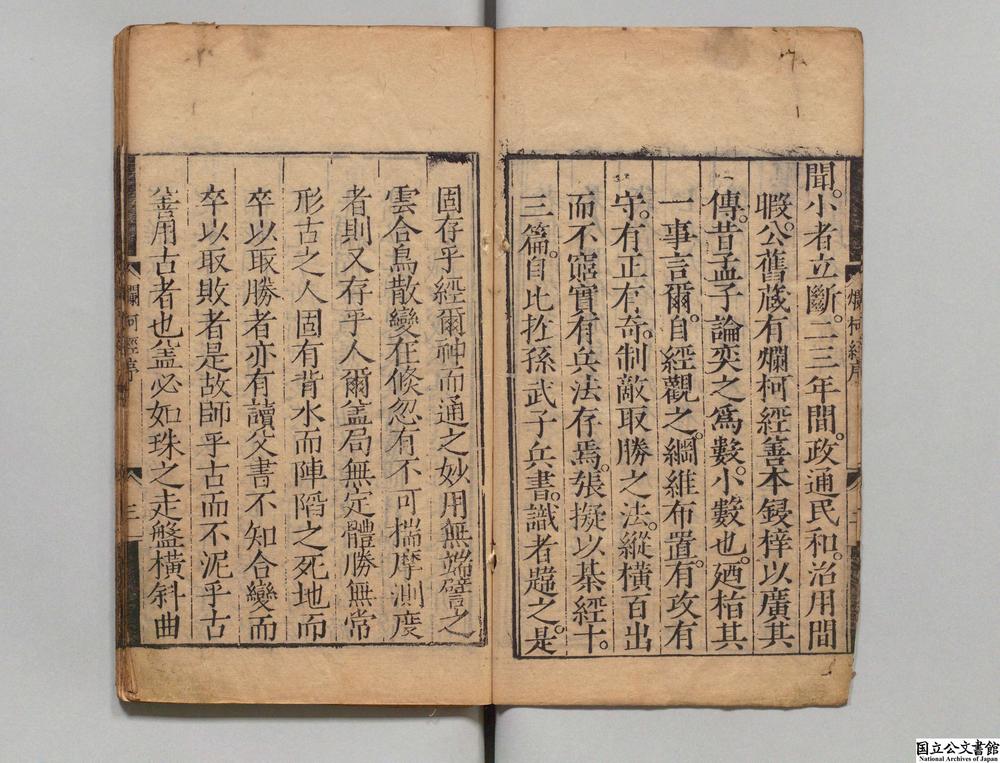 聞。小者立斷。二三年間。政通民和。治用間
暇。公舊蔵有爛柯經善本。鋟梓以廣其
傳。昔孟子論奕之爲數。小數也。廼栺其
一事言爾。自經觀之。綱維布置。有攻有
守。有正有奇。制敵取勝之法。縱橫百出
而不窮。實有兵法存焉。張擬以棊經十
三篇。自比於孫武子兵書。識者韙之。是
爛柯經序
固存乎經爾神而通之妙用無端譬之
雲合鳥散變在倐忽有不可揣摩測度
者則又存乎人爾盖局無定體勝無常
形古之人固有背水而陣陷之死地而
卒以取勝者亦有讀父書不知合變而
卒以取敗者是故師乎古而不泥乎古
善用古者也盖必如珠之走盤橫斜曲
爛柯經序
三
国立公文書館
National Archives of Japan